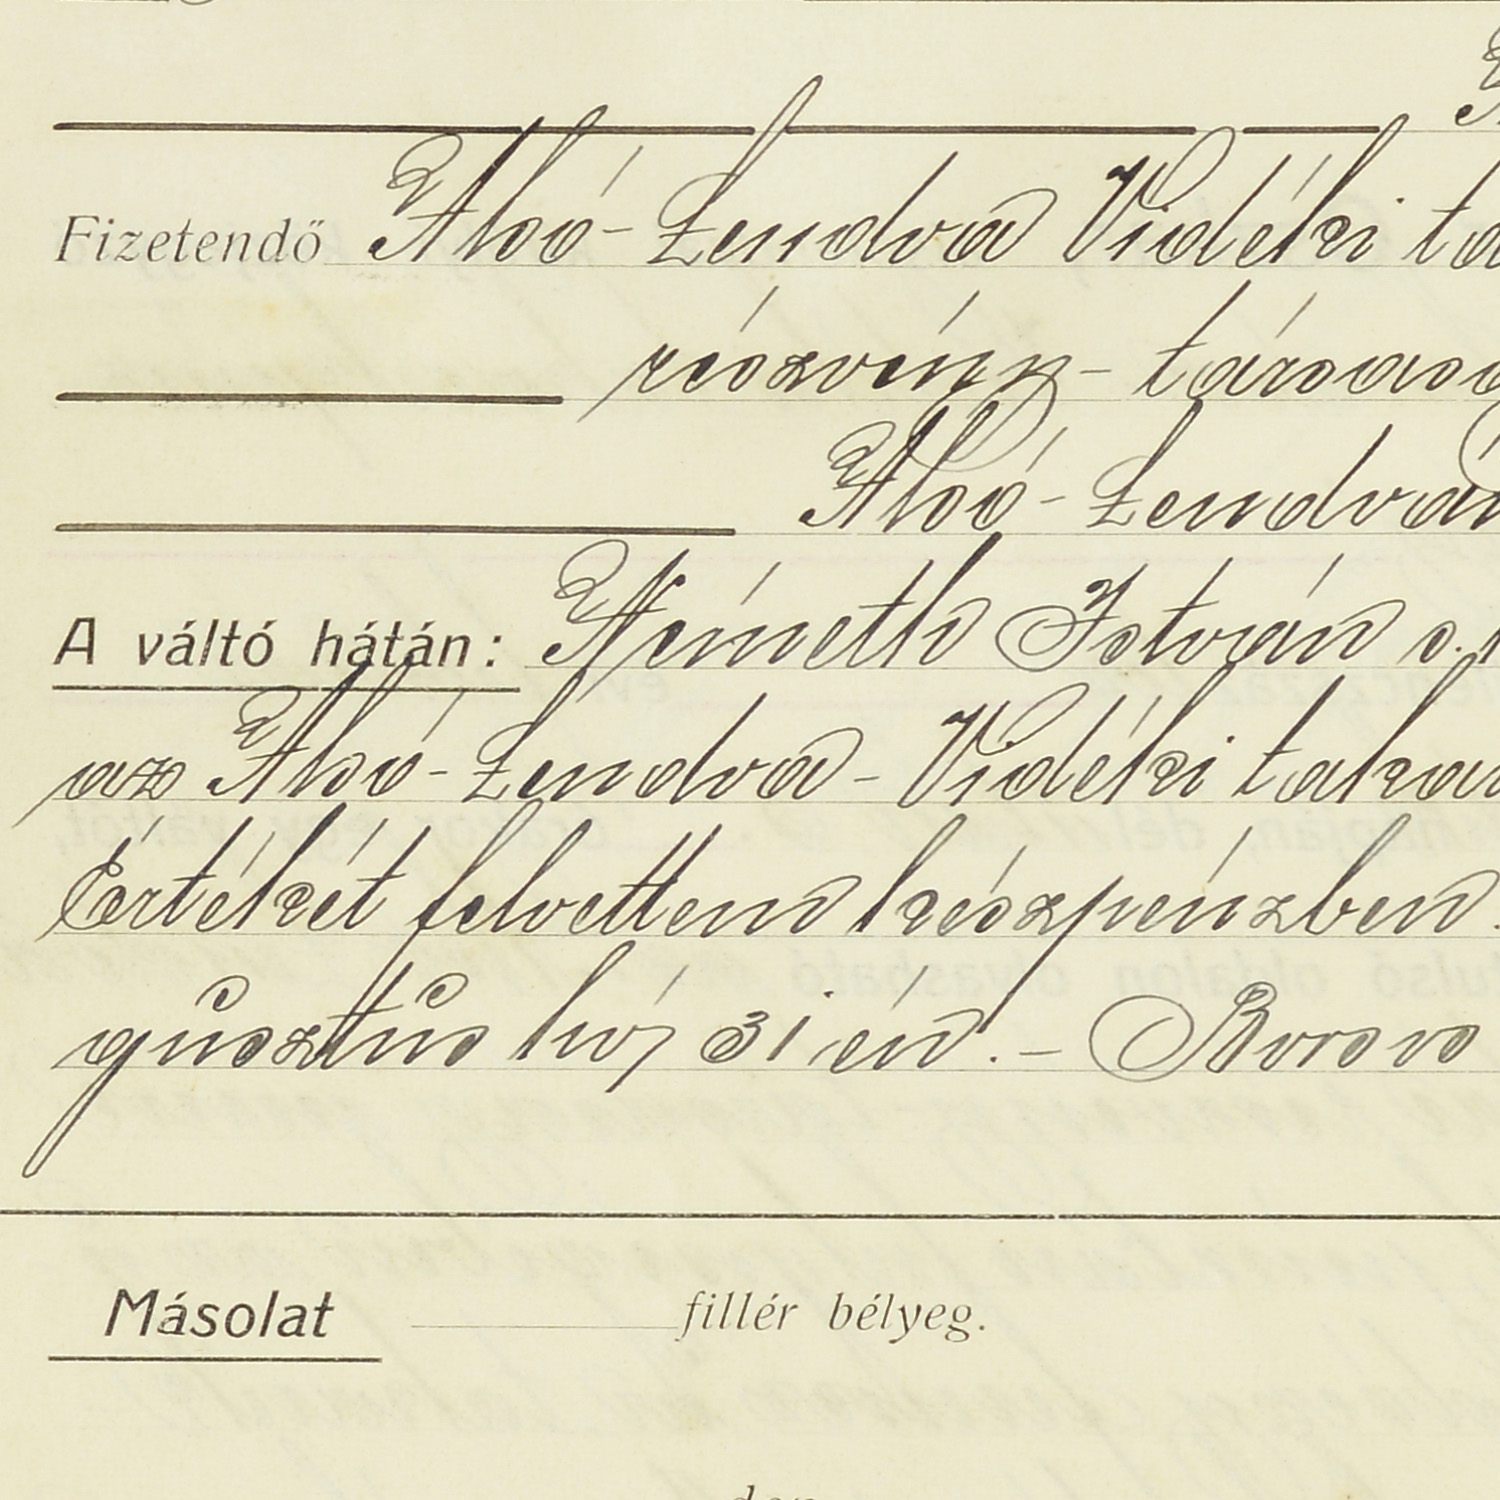 Fizetendő Alsó-Lendva Vidéki ta
részvény- társasá
Alsó-Lendván
A váltó hátán: Németh István s.
az Alsó-Lendva-Vidéki takar
Értékét felvettem készpénzben.
gusztus hó 31 én. - Borsos
Másolat fillér bélyeg.